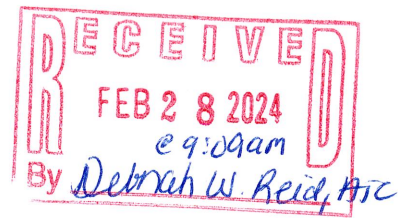 RECEIVED
FEB 28 2024
@ 9:09am
By Debnah W. Reid, AIC